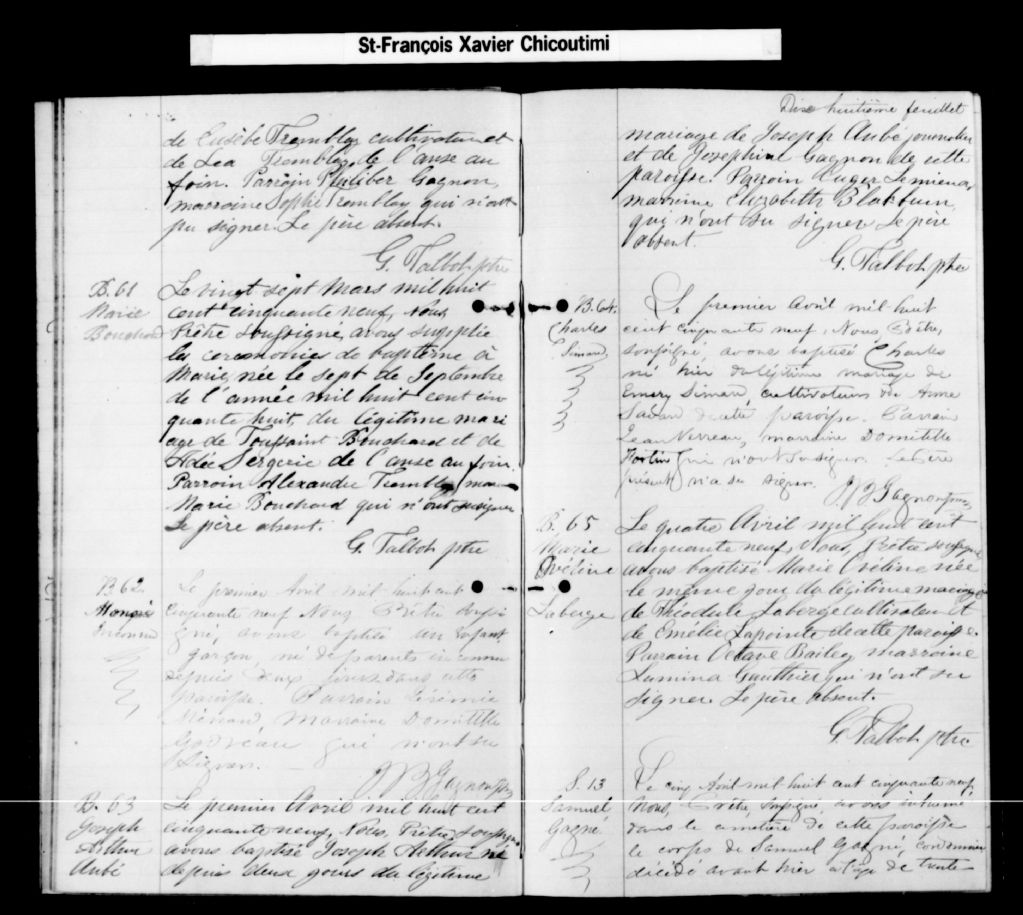 St-François Xavier Chicoutimi
de Eusèbe Tremblay cultivateur et
de Lea Tremblay de l'anse au
foin. Parrain Philiber Gagnon,
marraine Sophie Tremblay qui n'ont
pu signer. Le père absent.
G. Talbot ptre
B. 61
Marie
Bouchard
Le vingt sept Mars mil huit
cent cinquante neuf, Nous,
Prêtre soussigné, avons suppplée
les ceremonies de baptême à
Marie, née le sept de Septembre
de l'année mil huit cent cin
quante huit, du légitime mari
age de Toussaint Bouchard et de
Adée Sergerie de l'anse au foin.
Parrain Alexandre Tremblay,
Marie Bouchard qui n'ont su signer
Le père absent.
G. Talbot ptre
B 62
Inconnu
Le premier Avril mil huit cent
cinquante neuf Nous Prêtre soussi
gné, avons baptisé un enfant
garçon, né de parents inconnu
depuis deux jours dans cette
paroisse. Parrain Jérémie
Marraine Domitille
qui n'ont su
signer.
JB Gagnon ptre
B. 63
Joseph
Arthur
Aubé
Le premier Avril mil huit cent
cinquante neuf, Nous, Prêtre, soussigné
avons baptisé Joseph Arthur né
depuis deux jours du légitime
Dix huitième feuillet
mariage de Joseph Aubé journalier
et de Josephine Gagnon de cette
paroisse. Parrain Auger Lemieux,
marraine Elizabeth Blakburn
qui n'ont su signer le père
absent.
G. Talbot ptre
B. 64.
Charles
Simard
Le premier Avril mil huit
cent cinquante neuf, Nous Prêtre,
soussigné, avons baptisé Charles
né hier du légitime mariage de
Emery Simard, cultivateur de Anne
Savard de cette paroisse. Parrain
Jean Verreau, marraine Domitille
Fortin qui n'ont su signer. Le Père
présent n'a su signer.
JB Gagnon ptre
B. 65
Marie
Evéline
Laberge
Le quatre Avril mil huit cent
cinquante neuf, Nous, Prêtre soussigné
avons baptisé Marie Evéline née
le même jour du légitime mariage
de Théodule Laberge cultivateur et
de Emélie Lapointe de cette paroisse.
Parrain Octave Bailey marraine
Lumina Gauthier qui n'ont su
signer. Le père absent.
G. Talbot ptre
S. 13
Samuel
Gagné
Le cinq Avril mil huit cent cinquante neuf,
Nous, Prêtre, soussigné, avons inhumé
dans le cimetière de cette paroisse
le corps de Samuel Gagné, cordonnier
décédé avant hier à l'age de trente